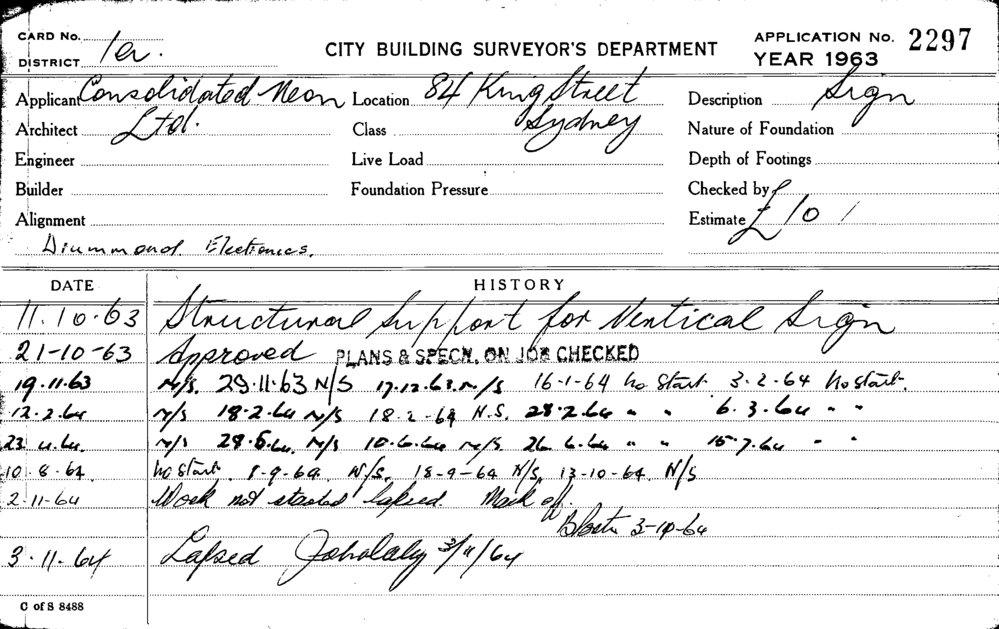 CARD No.
DISTRICT 1er.
CITY BUILDING SURVEYOR'S DEPARTMENT
APPLICATION No. 2297
YEAR 1963
Applicant Consolidated Neon Location 84 King Street Description Sign
Architect Ltd. Class Sydney Nature of Foundation
Engineer Live Load Depth of Footings
Builder Foundation Pressure Checked by
Alignment Estimate £10/
Drummond Electronics.
DATE HISTORY
11.10.63 Structural Support for Vertical Sign
21-10-63 Approved PLANS & SPECN. ON JOB CHECKED
19.11.63 N/S. 29.11.63 N/S 17.12.63. N/S 16-1-64 No Start 3-2-64 No start.
12.2.64 N/S 18.2.64 N/S 18-2-64 N.S. 28.2.64 " " 6.3.64 " "
23.4.64. N/S 29.5.64. N/S 10.6.64 N/S. 26.6.64 " " 15.7.64 " "
10.8.64. No Start. 8-9-64. N/S. 18-9-64 N/S. 13-10-64. N/S
2-11-64 Work not started lapsed. Mark off.
3-10-64
3.11.64 Lapsed 3/11/64
C of S 8488